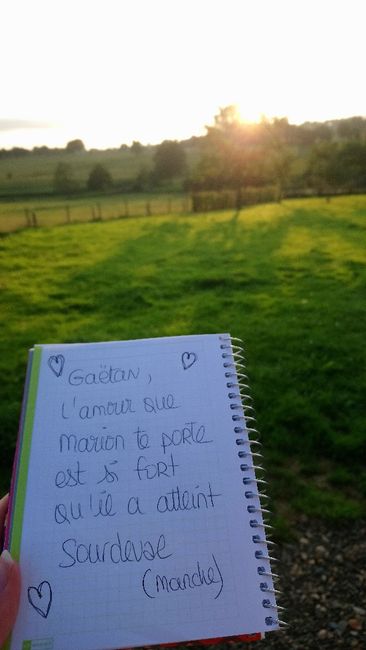 Gaëtan,
L'amour que
Marion te porte
est si fort
qu'il a atteint
Sourdeval
(Manche)